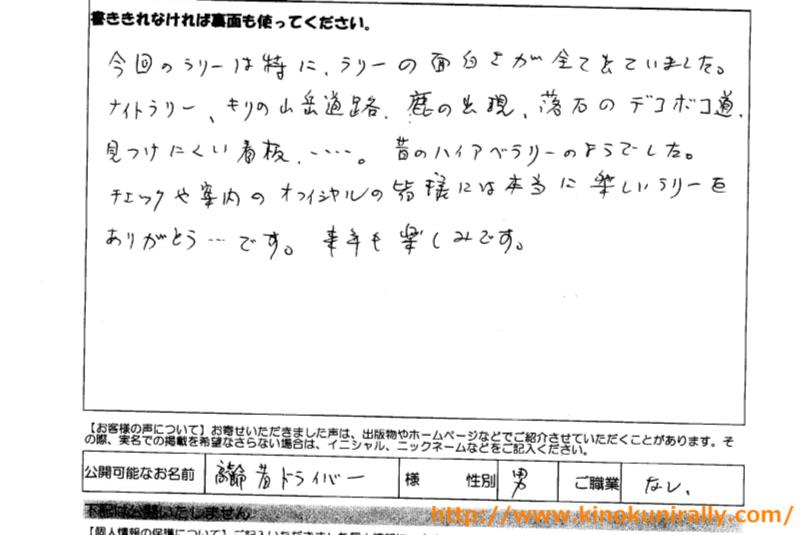 書ききれなければ裏面も使ってください。
今回のラリーは特に、ラリーの面白さが全て出ていました。
ナイトラリー、キリの山岳道路、鹿の出現、落石のデコボコ道、
見つけにくい看板、‥‥。昔のハイアベラリーのようでした。
チェックや案内のオフィシャルの皆様には本当に楽しいラリーを
ありがとう…です。来年も楽しみです。
【お客様の声について】お寄せいただきました声は、出版物やホームページなどでご紹介させていただくことがあります。そ
の際、実名での掲載を希望なさらない場合は、イニシャル、ニックネームなどをご記入ください。
公開可能なお名前 高齢者ドライバー 様 性別 男 ご職業 なし、
下記は公開いたしません
http://www.kinokunirally.com/